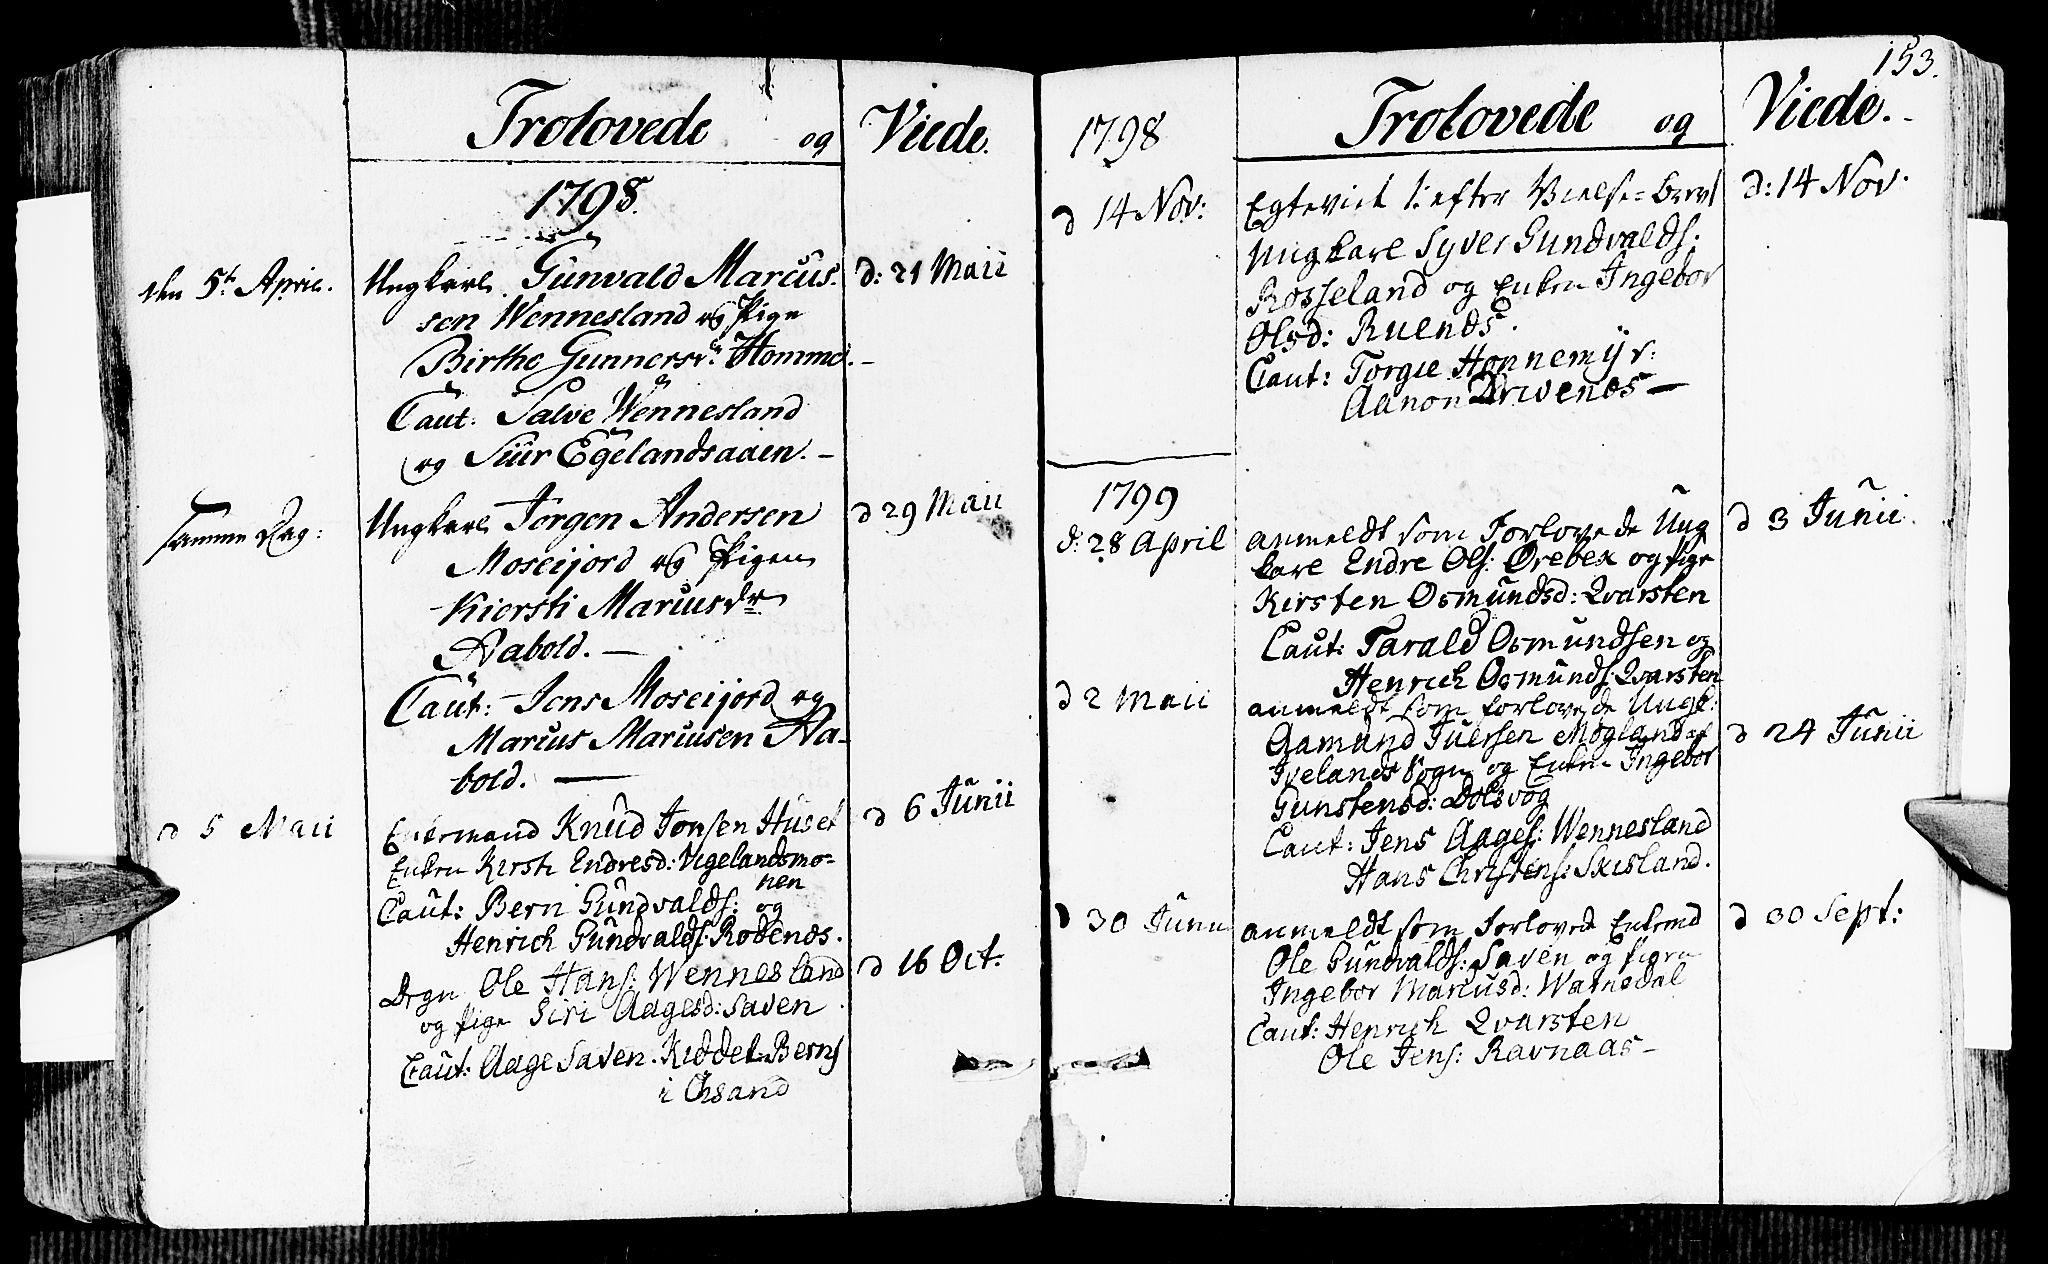 Trolovede og Viede.
1798.
den 5t April. Ungkarl Gunvald Marcus- d: 21 Maii
sen Wennesland og Pige
Birthe Gunnersdr. Homme. –
Caut: Salve Wennesland
og Siur Egelandsaaen. –
samme Dag: Ungkarl Jørgen Andersen d 29 Maii
Moseijord og Pigen
Kiersti Marcusdr
Aabold. —
Caut: – Jens Moseijord og
Marcus Marcusen Aa-
bold. —
d 5 Maii Enkemand Knud Jonsen Huset d 6 Junii
Enken Kirsti Endresd: Vigelandsmo-
nen
Caut: Bern Gundvalds: og
Henrich Gundvalds: Robenæs.
Dregn Ole Hans: Wennesland d 16 Oct:
og Pige Siri Aagesd: Saven
Caut: Aage Saven. Kiddel Berns
i Chsand
153.
1798 Trolovede og Viede. -
d 14 Nov: Egteviet efter Vielse-brev d: 14 Nov:
Ungkarl Syver Gundvalds:
Rosseland og Enken Ingebor
Olsd: Ruenæs.
Caut: Torgie Honnemyr:
Aanon Drivenæs –
1799
d: 28 April anmeldt som Forlovede Ung d 3 Junii.
karl Endre Ols: Ørebek og Pige
Kirsten Osmundsd: Qvarsten
Caut: Tarald Osmundsen og
Henrich Osmunds: Qvarsten
d 2 Maii anmeldt som forlovede Ungk:
Aamund Iversen Mogland af d 24 Junii
Ivelands Sogn og Enken Ingebor
Gunstensd: Dolsvog
Caut: Jens Aages: Wennesland
Hans Christens: Skisland.
d 30 Junii anmeldt som Forlovede Enkemd d 30 Sept:
Ole Gundvalds: Saven og Pigen
Ingebor Marcusd: Watnedal
Caut: Henrich Qvarsten
Ole Jens: Ravnaas –